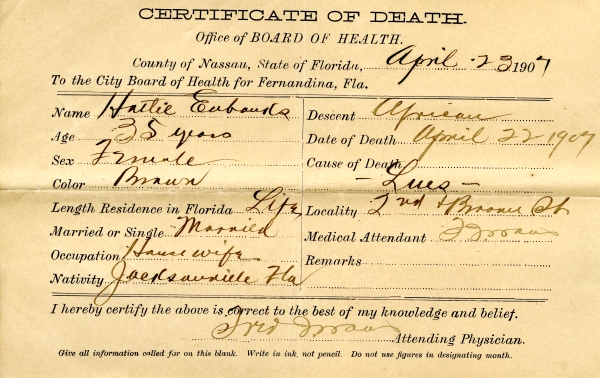 CERTIFICATE OF DEATH.
Office of BOARD OF HEALTH.
County of Nassau, State of Florida, April 23 1907
To the City Board of Health for Fernandina, Fla.
Name Hattie Eubanks
Age 35 years
Sex Female
Color Brown
Length Residence in Florida Life
Married or Single Married
Occupation House wife
Nativity Jacksonville Fla
Descent African
Date of Death April 22 1907
Cause of Death
- Lues -
Locality 2nd & Broome St
Medical Attendant
Remarks
I hereby certify the above is correct to the best of my knowledge and belief.
Fred
Attending Physician.
Give all information called for on this blank. Write in ink, not pencil. Do not use figures in designating month.